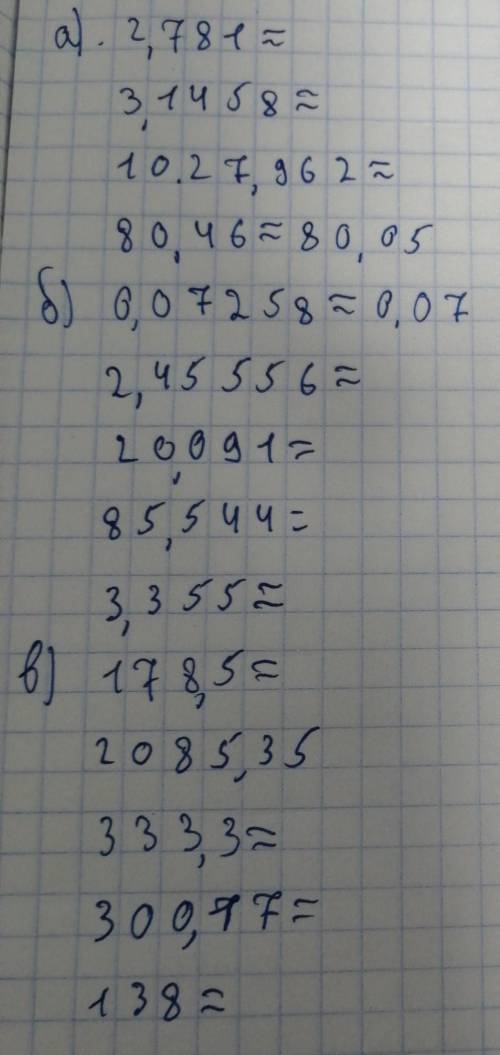 а). 2,781≈
3,1458≈
10.27,962≈
80,46≈80,05
б) 0,07258≈0,07
2,45556≈
20,091=
85,544=
3,355≈
в) 178,5≈
2085,35
333,3≈
300,77=
138=